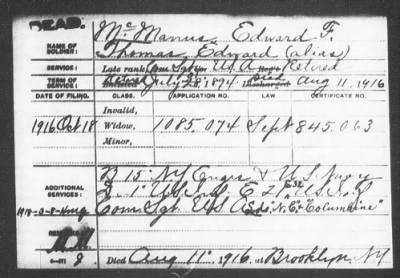 DEAD.
McManus, Edward F.
NAME OF SOLDIER:
Thomas, Edward (alias)
SERVICE:
Late rank Com Sgt U.S.A. Retired
TERM OF SERVICE:
Enlisted July 28, 1894 Died Aug 11, 1916
DATE OF FILING. CLASS. APPLICATION NO. LAW. CERTIFICATE NO.
Invalid,
1916 Oct 18 Widow, 1085.074 Sept 845.063
Minor,
ADDITIONAL SERVICES:
B 15" NY Engrs & U.S. Navy
Com Sgt US A "Columbine"
REMARKS:
Died Aug 11", 1916, at Brooklyn, NY